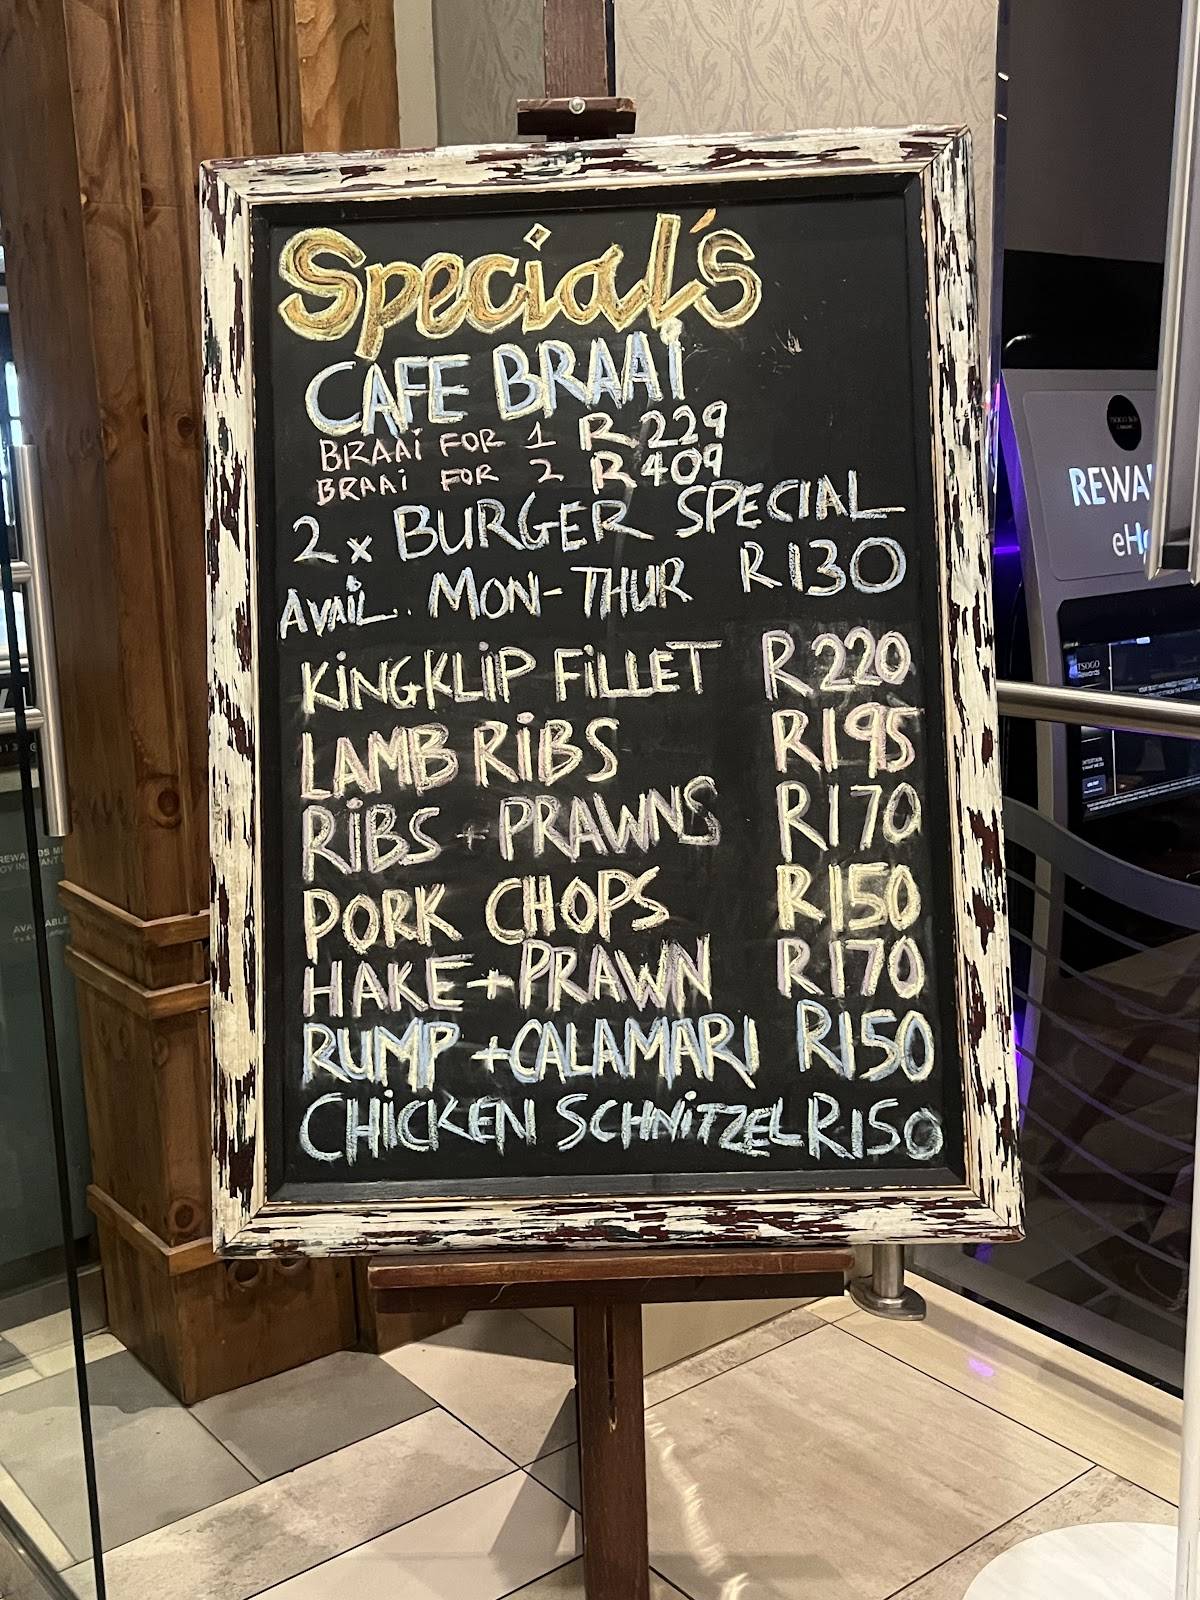 Special's
CAFE BRAAi
BRAAi FOR 1 R229
BRAAi FOR 2 R409
2x BURGER SPECIAL
AVAiL. MON-THUR R130
KiNGKLiP FiLLET R220
LAMB RiBS R195
RiBS + PRAWNS R170
PORK CHOPS R150
HAKE+PRAWN R170
RUMP +CALAMARI R150
CHiCKEN SCHNiTZEL R150
REWA
eHo
TSOGO